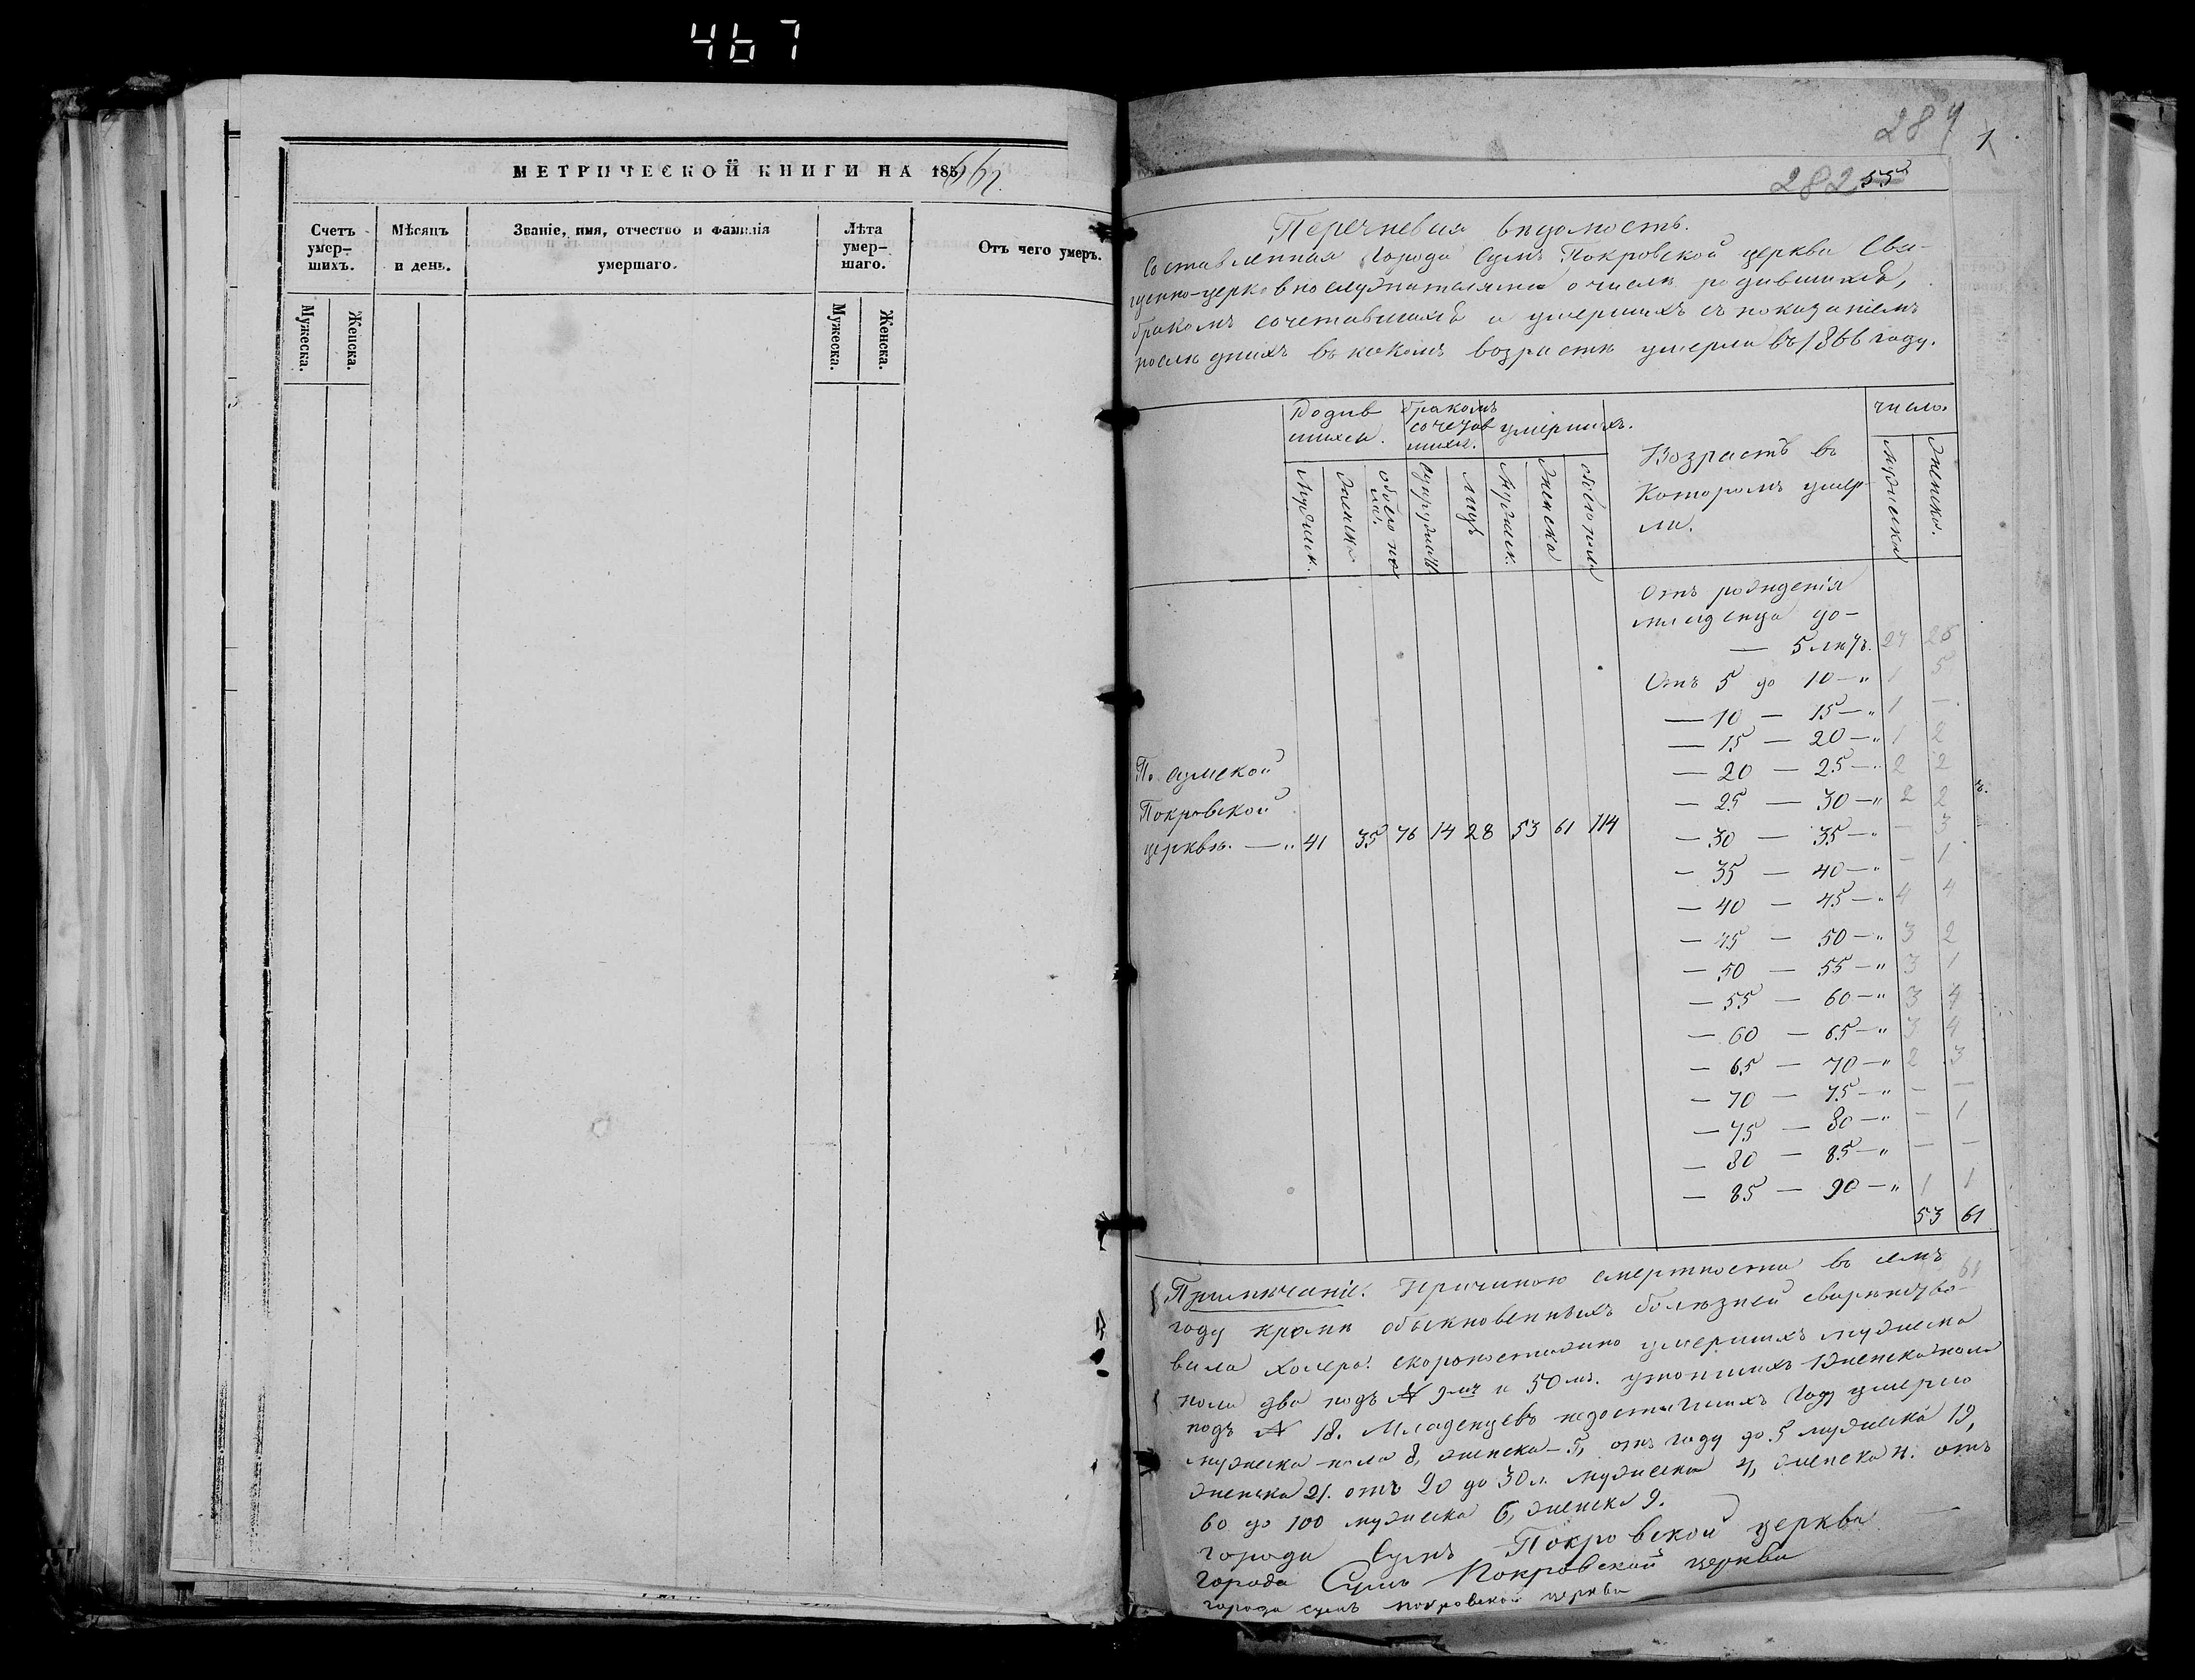 467
МЕТРИЧЕСКОЙ КНИГИ НА 1866 г.
Счетъ умер-
шихъ.
Мужеска.
Женска.
Мѣсяцъ
и день.
Званіе, имя, отчество и фамилія
умершаго.
Лѣта
умер-
шаго.
Мужеска.
Женска.
Отъ чего умеръ.
284
1
282 55
Перечневая вѣдомость.
Составленная города Сумъ Покровской церкви Свя-
щенно-церковнослужителями о числѣ родившихся,
бракомъ сочетавшихся и умершихъ съ показаніемъ
послѣднихъ въ какомъ возрастѣ умерли въ 1866 году.
Родив
шихся.
бракомъ
сочетав
шихся.
умершихъ.
Возрастъ въ
Которомъ умер-
ли.
число.
Мужеск.
Женска
обоего по
ла.
Супружны
лицъ
Мужеск.
Женска
обоего пола
мужеска
женска.
Отъ рожденія
младенца до-
— 5 лѣтъ. 27 26
Отъ 5 до 10 —„ 1 5
— 10 — 15 —„ 1 —
— 15 — 20 —„ 1 2
— 20 — 25 —„ 2 2
— 25 — 30 —„ 2 2
— 30 — 35 —„ — 3
— 35 — 40 —„ — 1
— 40 — 45 —„ 4 4
— 45 — 50 —„ 3 2
— 50 — 55 —„ 3 1
— 55 — 60 —„ 3 4
— 60 — 65 —„ 3 4
— 65 — 70 —„ 2 3
— 70 — 75 —„ — —
— 75 — 80 —„ — 1
— 80 — 85 —„ — —
— 85 — 90 —„ 1 1
53 61
По Сумской
Покровской
церкви. —„ 41 35 76 14 28 53 61 114
Примѣчаніе. Причиною смертности въ семъ
году кромѣ обыкновенныхъ болѣзней свирѣпство-
вала холера. скоропостижно умершихъ мужеска
пола два подъ № 9мъ и 50мъ. утопшихъ 1 женска пола
подъ № 18. Младенцевъ недостигшихъ году умерло
мужеска пола 8, женска — 5, отъ году до 5 мужеска 19,
женска 21. отъ 20 до 30 л. мужеска 4, женска 4. отъ
60 до 100 мужеска 6, женска 9.
города Сумъ Покровской церкви
города Сумъ Покровской церкви
города Сумъ Покровской церкви